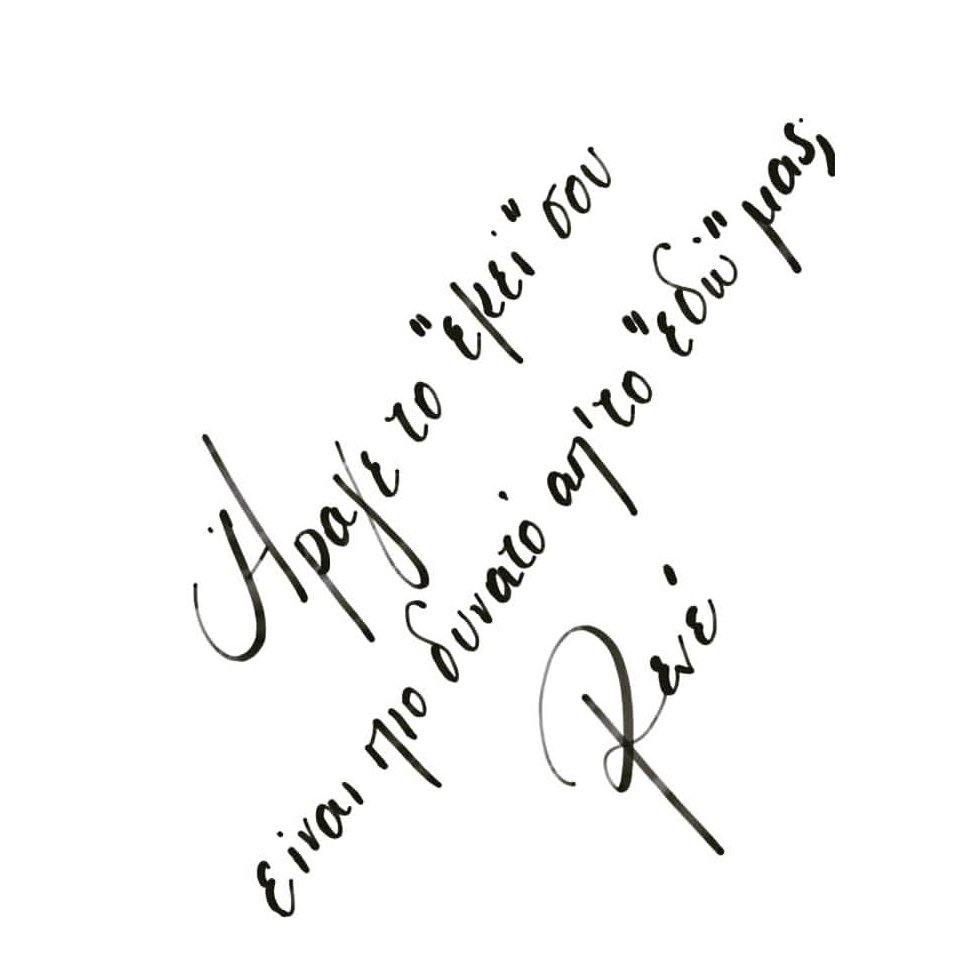 Άραγε το "εκεί" σου
είναι πιο δυνατό απ' το "εδώ" μας;
Ρενέ